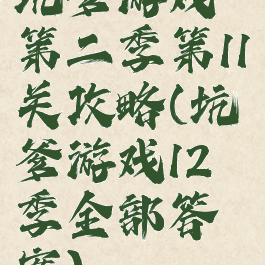 坑爹游戏
第二季第11
关攻略(坑
爹游戏12
季全部答
案)